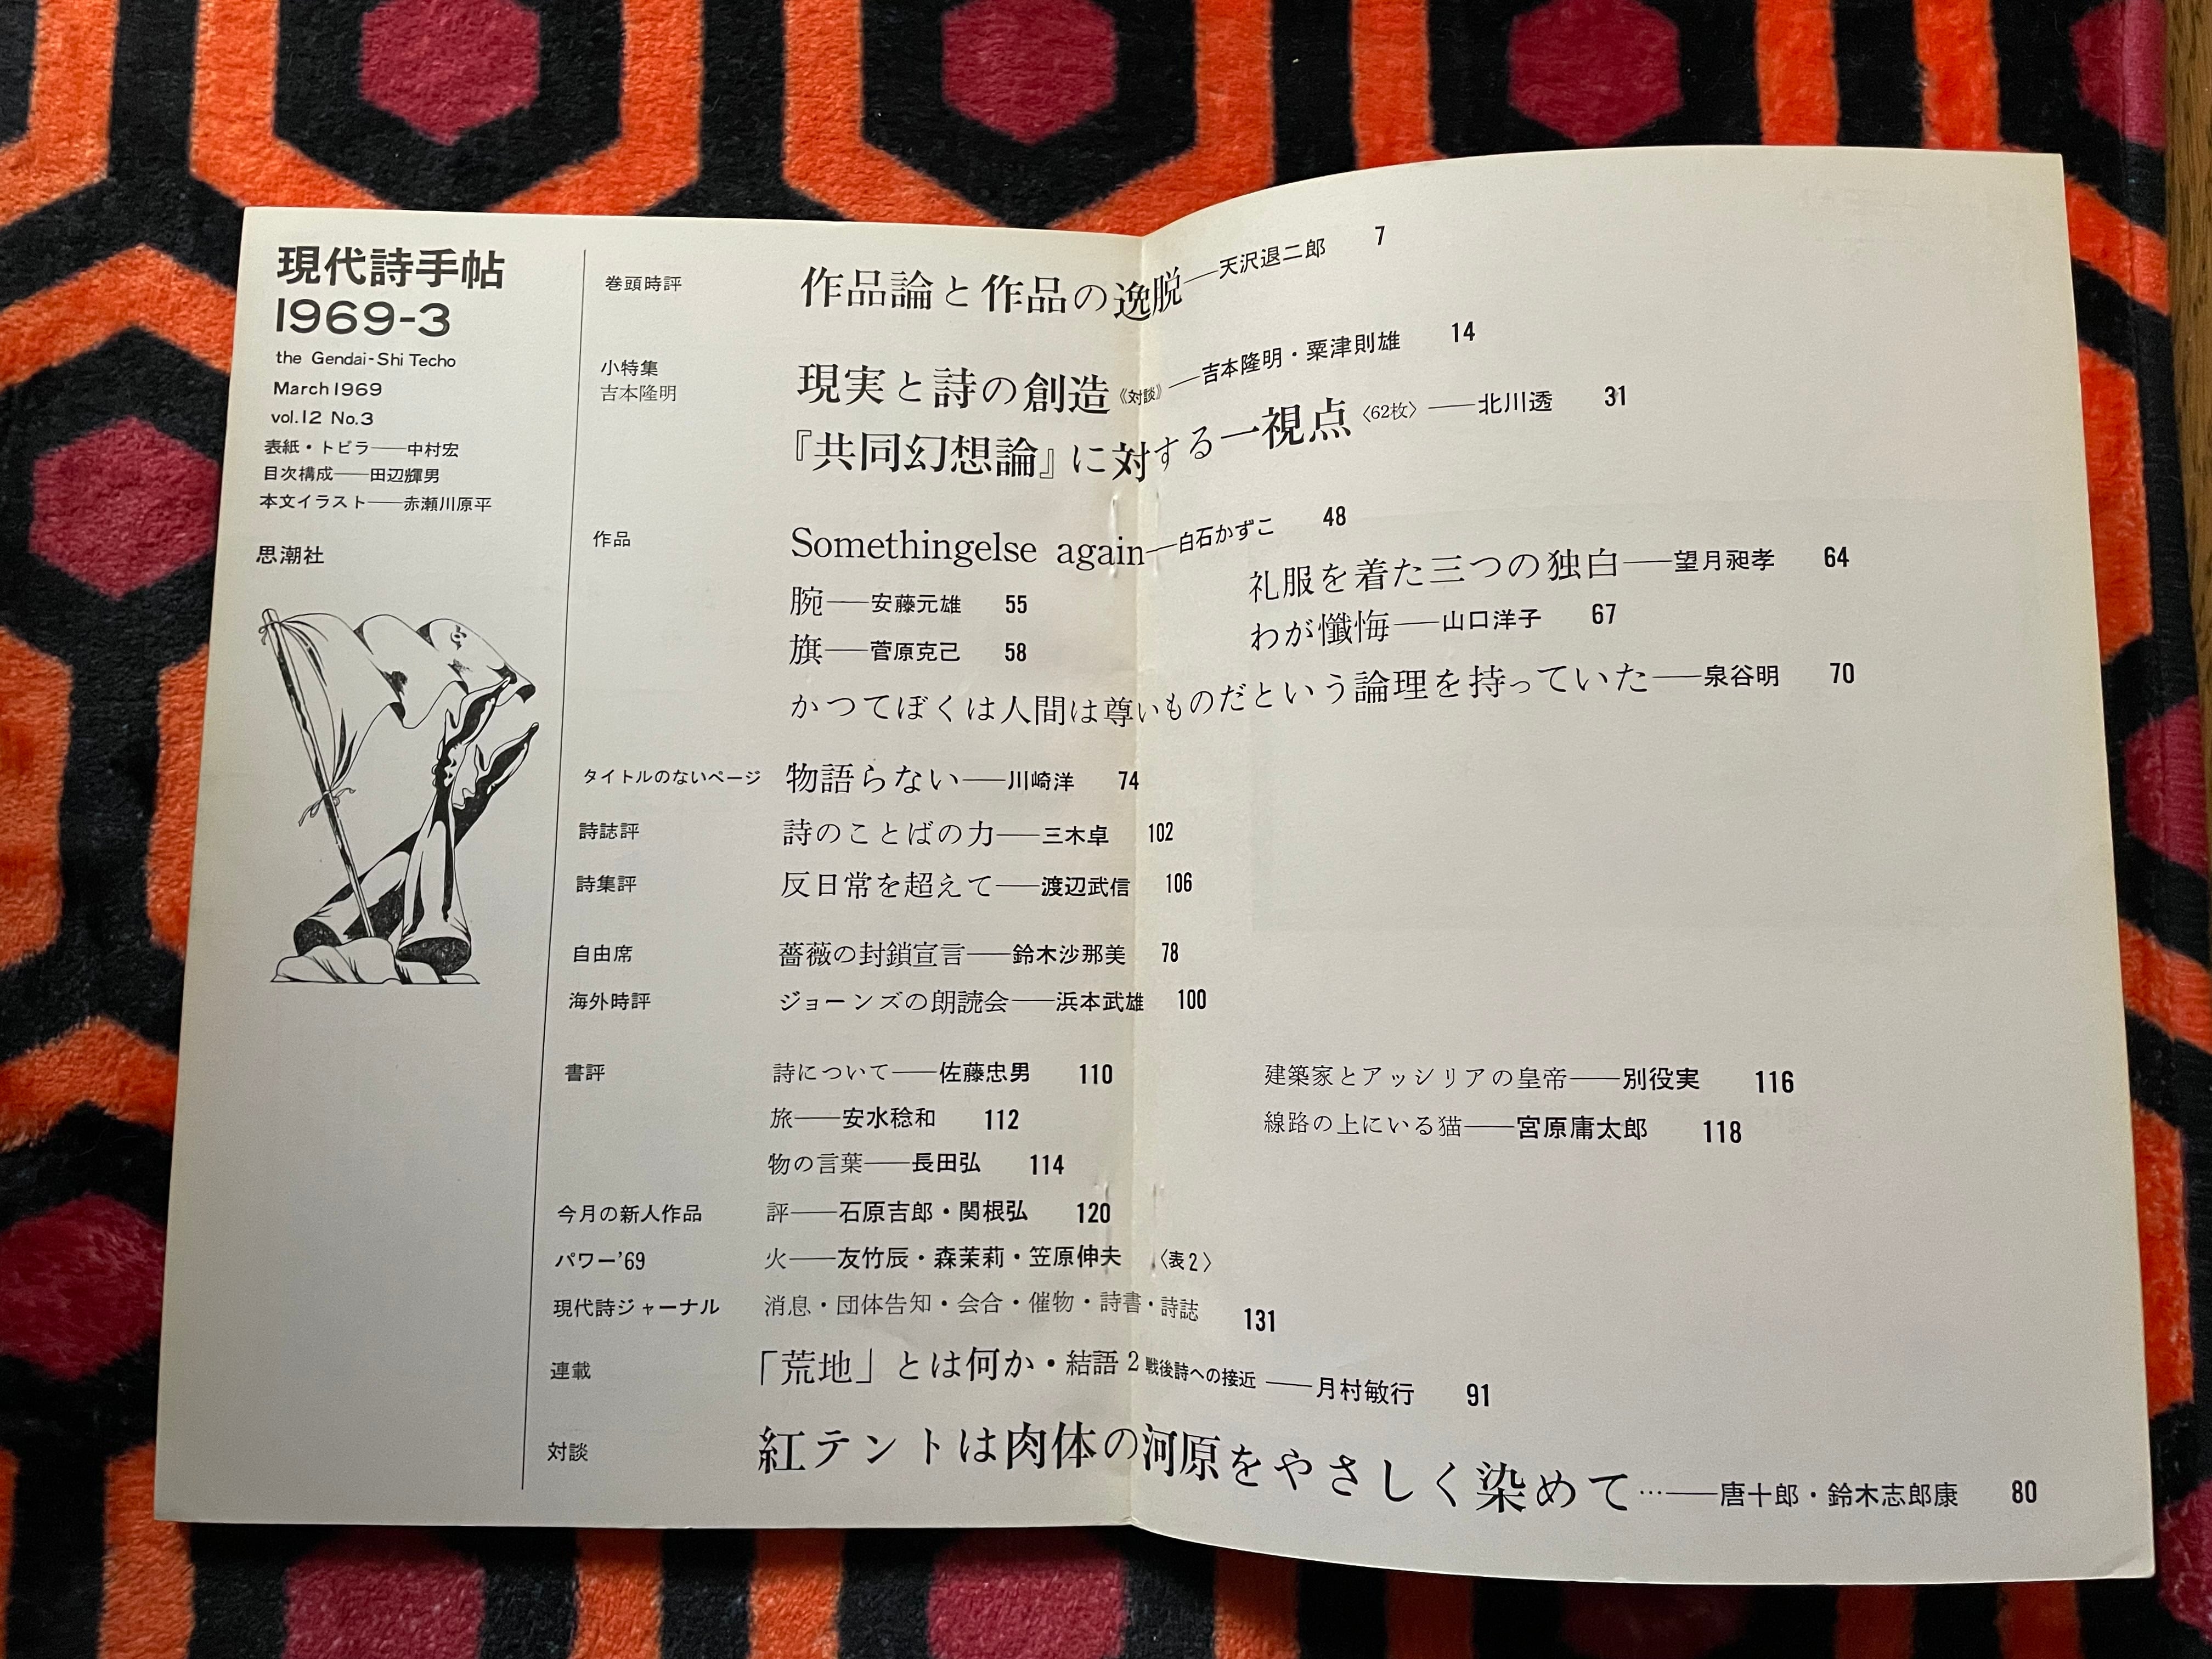 現代詩手帖
1969-3
the Gendai-Shi Techo
March 1969
vol.12 No.3
表紙・トビラ――中村宏
目次構成――田辺輝男
本文イラスト――赤瀬川原平
思潮社
巻頭時評 作品論と作品の逸脱――天沢退二郎 7
小特集 吉本隆明
現実と詩の創造《対談》――吉本隆明・粟津則雄 14
『共同幻想論』に対する一視点〈62枚〉――北川透 31
作品 Somethingelse again――白石かずこ 48
腕――安藤元雄 55
旗――菅原克己 58
礼服を着た三つの独白――望月昶孝 64
わが懺悔――山口洋子 67
かつてぼくは人間は尊いものだという論理を持っていた――泉谷明 70
タイトルのないページ 物語らない――川崎洋 74
詩誌評 詩のことばの力――三木卓 102
詩集評 反日常を超えて――渡辺武信 106
自由席 薔薇の封鎖宣言――鈴木沙那美 78
海外時評 ジョーンズの朗読会――浜本武雄 100
書評 詩について――佐藤忠男 110
旅――安水稔和 112
物の言葉――長田弘 114
建築家とアッシリアの皇帝――別役実 116
線路の上にいる猫――宮原庸太郎 118
今月の新人作品 評――石原吉郎・関根弘 120
パワー'69 火――友竹辰・森茉莉・笠原伸夫 〈表2〉
現代詩ジャーナル 消息・団体告知・会合・催物・詩書・詩誌 131
連載 「荒地」とは何か・結語2 戦後詩への接近――月村敏行 91
対談 紅テントは肉体の河原をやさしく染めて…――唐十郎・鈴木志郎康 80